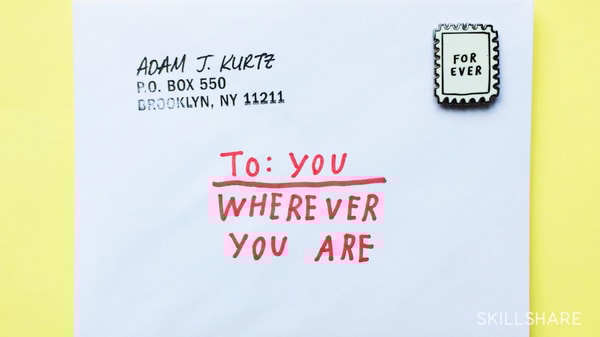 ADAM J. KURTZ
P.O. BOX 550
BROOKLYN, NY 11211
FOR
EVER
TO: YOU
WHEREVER
YOU ARE
SKILLSHARE